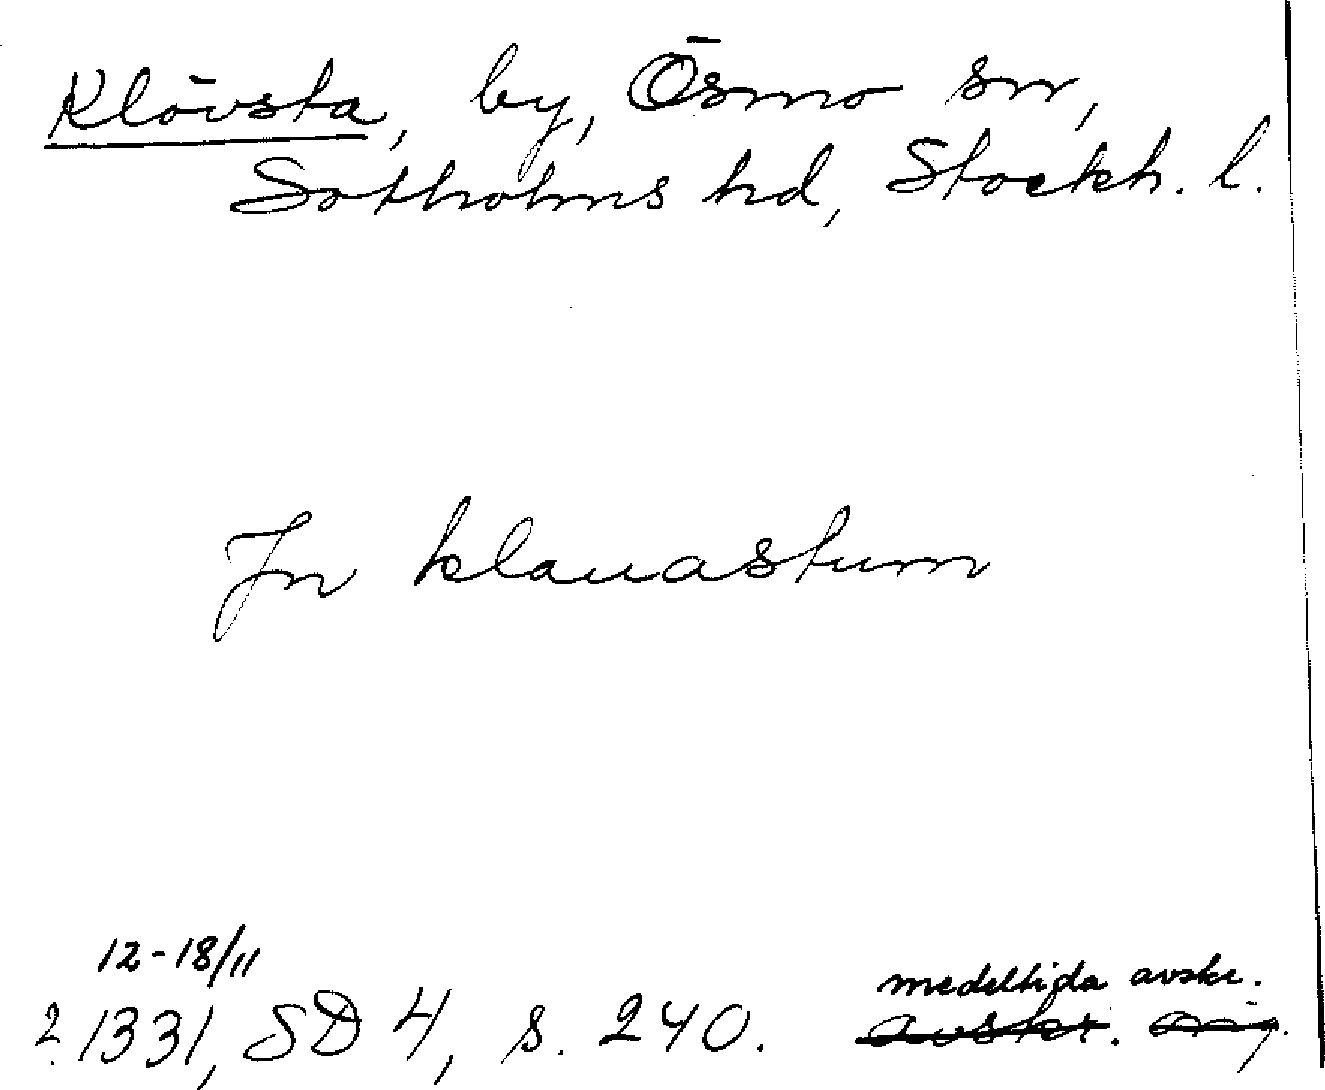 Klövsta, by, Ösmo sn,
Sotholms hd, Stockh. l.
In klauastum
12-18/11
? 1331, SD 4, s. 240.
medeltida avskr.
avskr. orig.